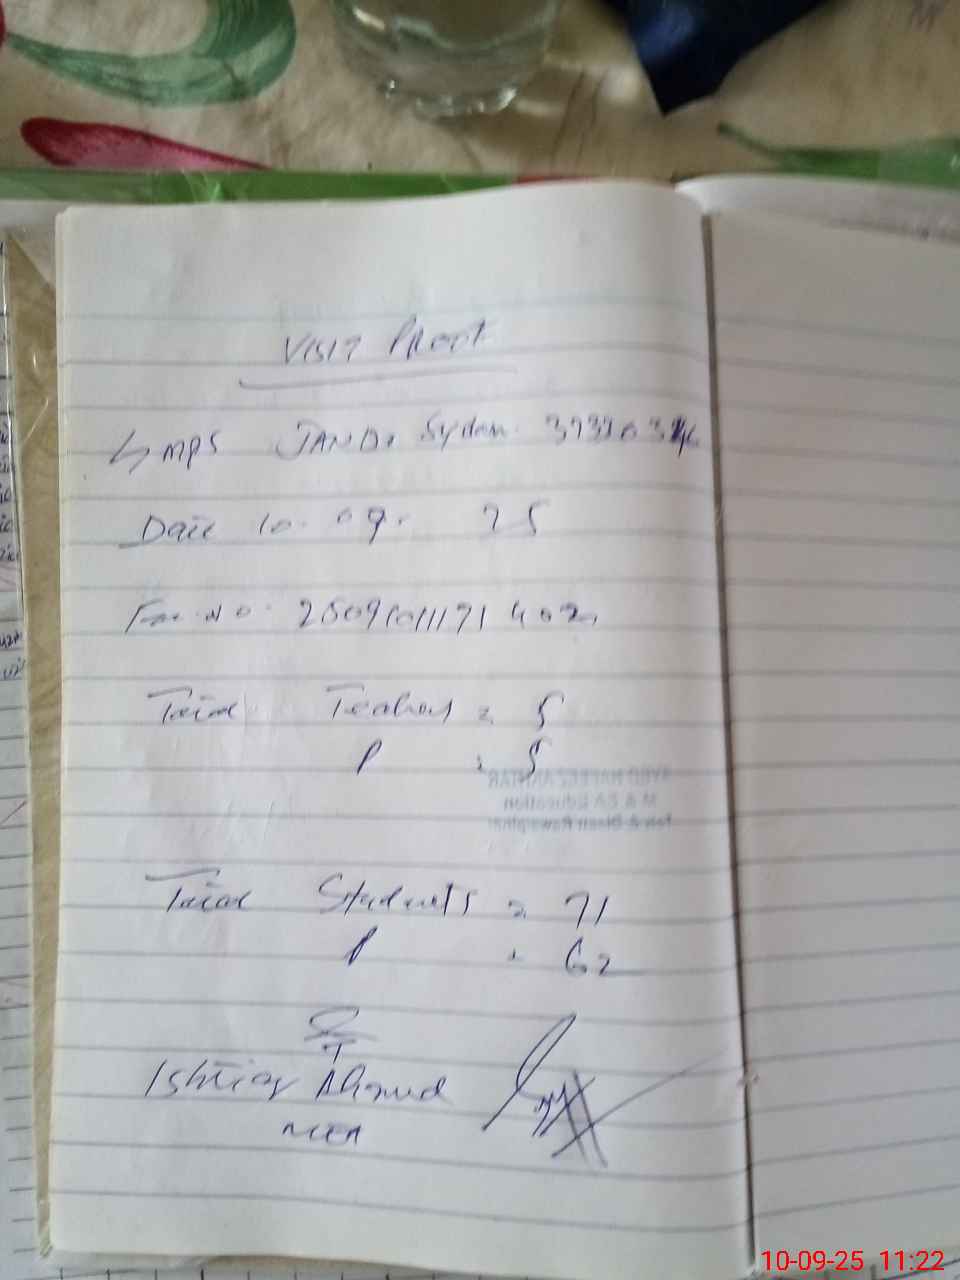 VISIT PROOF
GMPS JAND Syedan 37320346
Date 10. 09. 25
250910111714020
Total Teachers = 5
P = 5
Total Students = 71
P = 62
Ishtiaq Ahmed
MEA
10-09-25 11:22